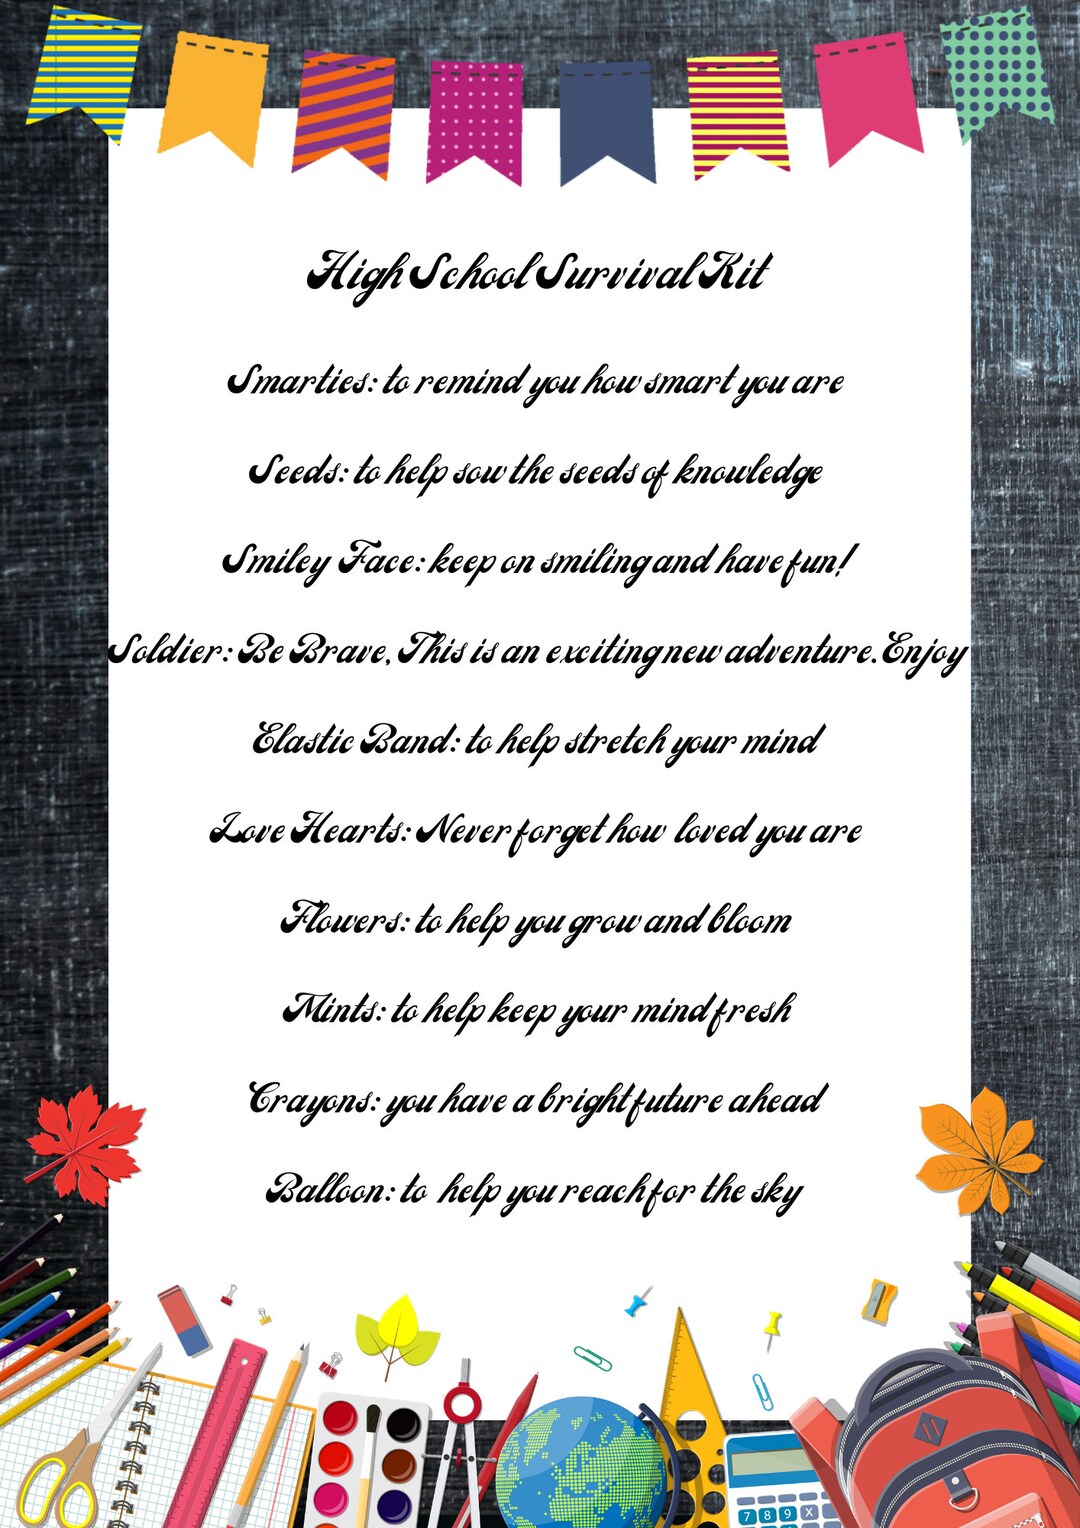 High School Survival Kit
Smarties: to remind you how smart you are
Seeds: to help sow the seeds of knowledge
Smiley Face: keep on smiling and have fun!
Soldier: Be Brave, This is an exciting new adventure. Enjoy
Elastic Band: to help stretch your mind
Love Hearts: Never forget how loved you are
Flowers: to help you grow and bloom
Mints: to help keep your mind fresh
Crayons: you have a bright future ahead
Balloon: to help you reach for the sky
7 8 9 X